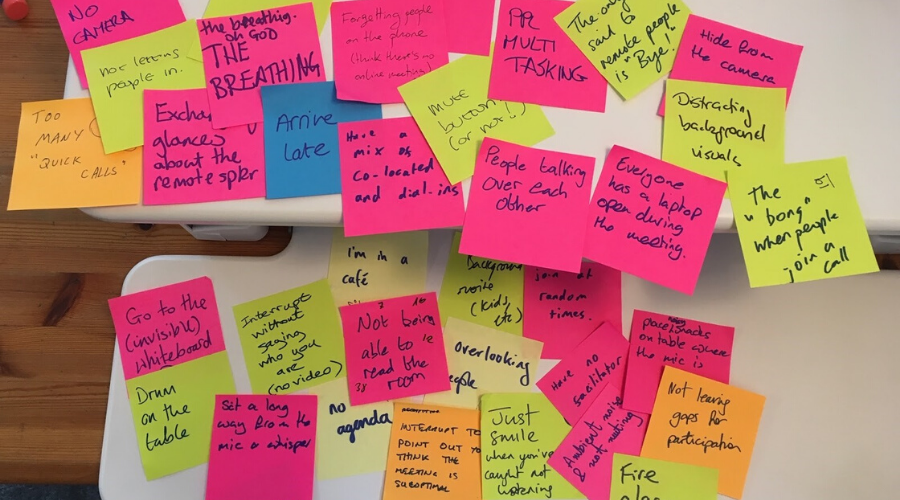 NO
CAMERA
not letting
people in.
the breathing.
oh GOD
THE
BREATHING
Forgetting people
on the phone
(think there's no
online meeting)
PPL
MULTI
TASKING
The only
said to
remote people
is "Bye!"
Hide from
the camera
TOO
MANY
"QUICK
CALLS"
Excha
glances
about the
remote spkr
Arrive
Late
Have a
mix of
co-located
and dial-ins
mute
button!)
(or not!!)
People talking
over each
other
Everyone
has a laptop
open during
the meeting.
Distracting
background
visuals
The
"bong"
when people
join a
call
Go to the
(invisible)
whiteboard
Drum
on the
table
Interrupt
without
saying
who you
are
(no video)
I'm in a
café
Not being
able to
read the
room
Background
(kids,
etc)
join at
random
times.
overlooking
Have no
facilitator
on table where
the mic is
Not leaving
gaps for
participation
Sit a long
way from the
mic & whisper
no
agenda
INTERRUPT TO
POINT OUT YO
THINK THE
MEETING IS
SUBOPTIMAL
Just
smile
when you've
caught not
listening
Ambient noise
& not muting
Fire